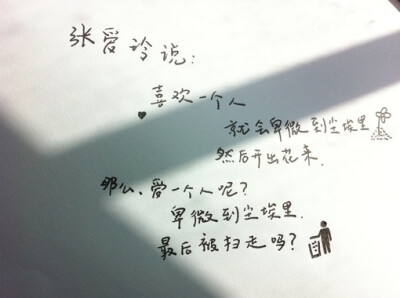 张爱玲说：
喜欢一个人
就会卑微到尘埃里
然后开出花来.
那么、爱一个人呢？
卑微到尘埃里.
最后被扫走吗？